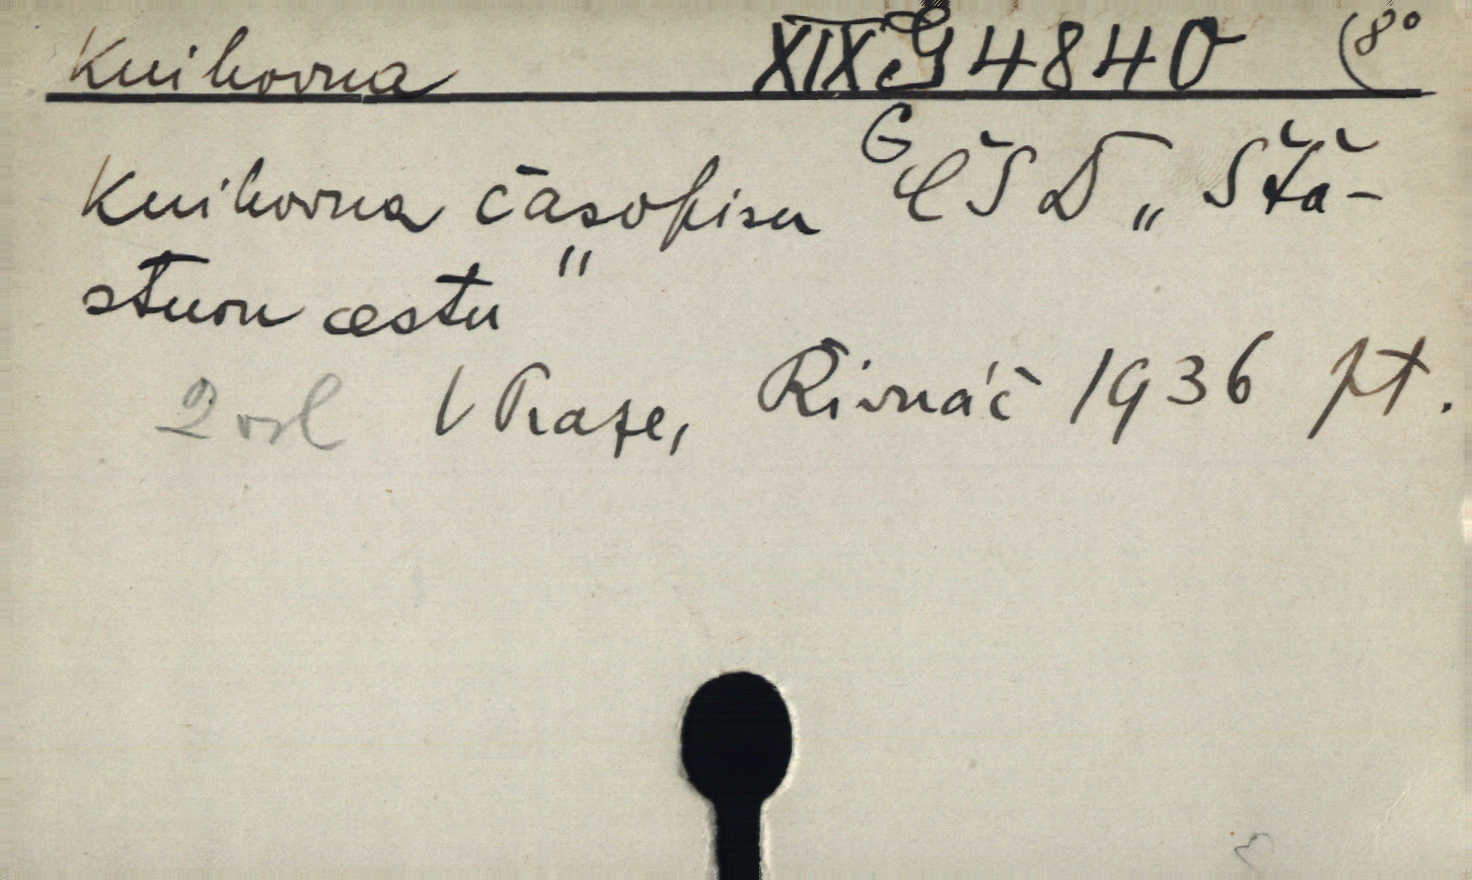 Knihovna XIX G 4840 (8°
G
Knihovna časopisu ČSD „Šťa-
stnou cestu"
2 sv V Praze, Řivnáč 1936 pt.